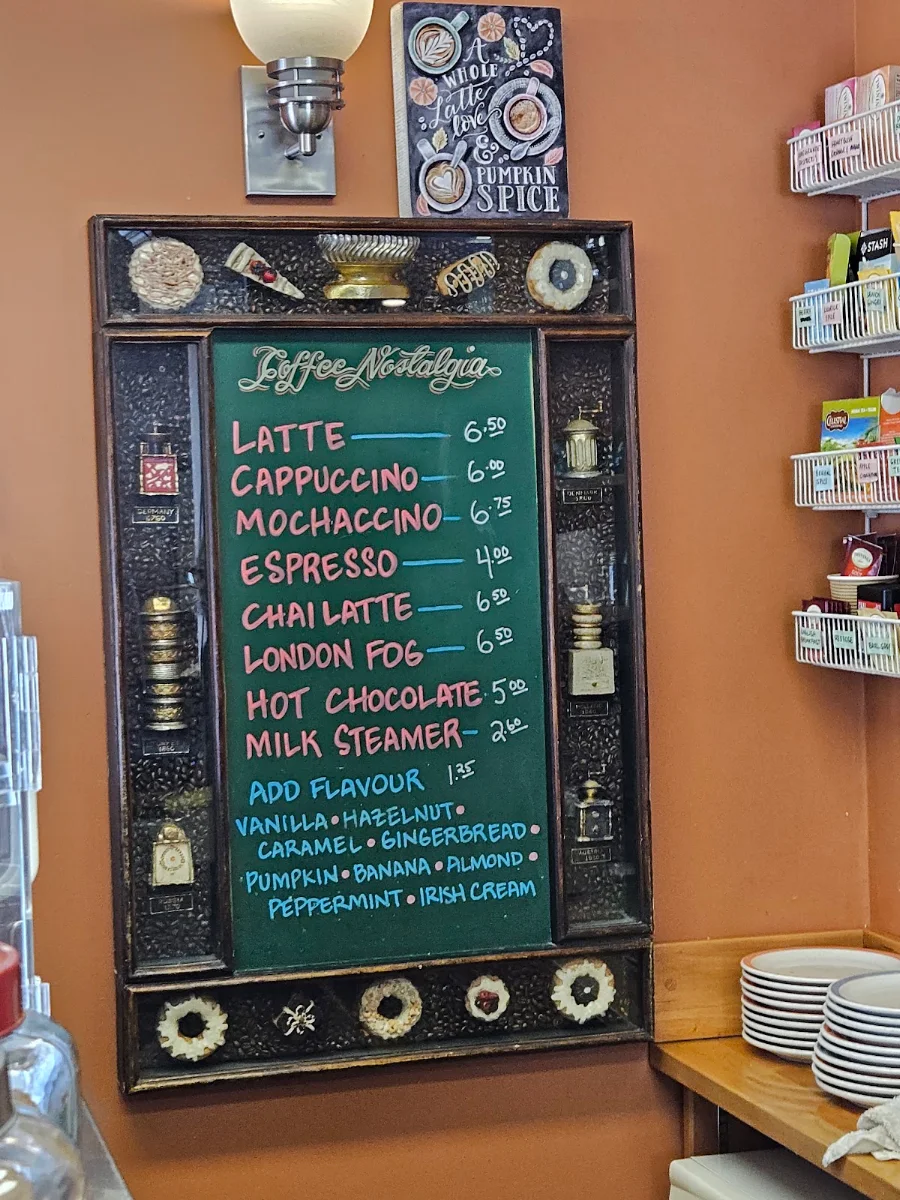 A
WHOLE
Latte
love
&
PUMPKIN
SPICE
Coffee Nostalgia
LATTE 6.50
CAPPUCCINO 6.00
MOCHACCINO 6.75
ESPRESSO 4.00
CHAI LATTE 6.50
LONDON FOG 6.50
HOT CHOCOLATE 5.00
MILK STEAMER 2.60
ADD FLAVOUR 1.25
VANILLA • HAZELNUT •
CARAMEL • GINGERBREAD •
PUMPKIN • BANANA • ALMOND •
PEPPERMINT • IRISH CREAM
GERMANY
STASH
CELESTIAL
EARL GREY